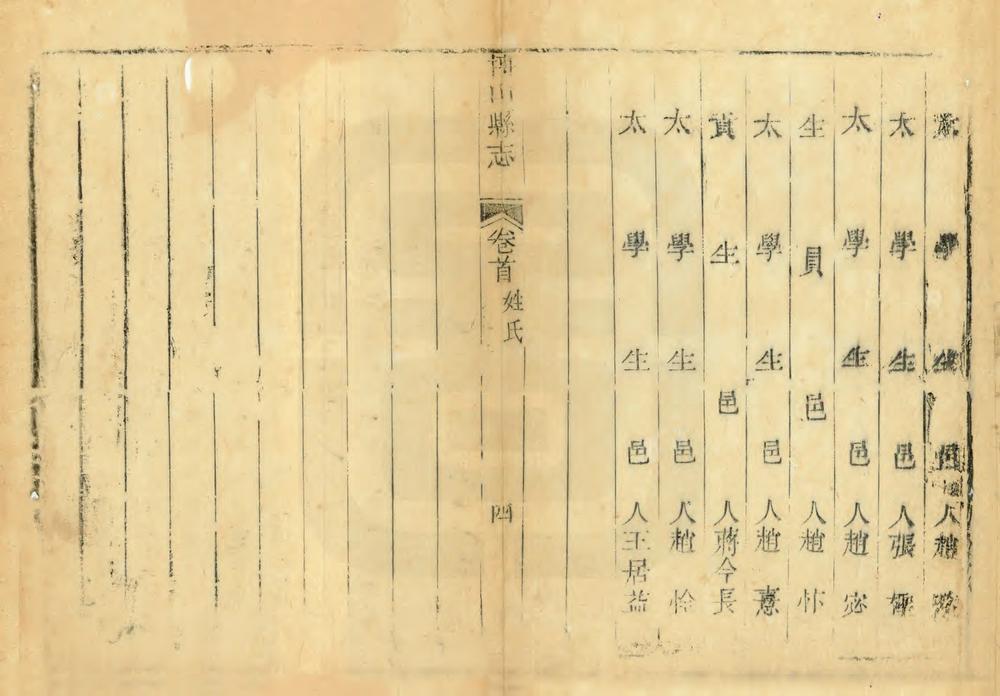 太學生邑人趙
太學生邑人張
太學生邑人趙宓
生員邑人趙忭
太學生邑人趙憙
貢生邑人蔣今長
太學生邑人趙恮
太學生邑人王居益
博山縣志
卷首
姓氏
四